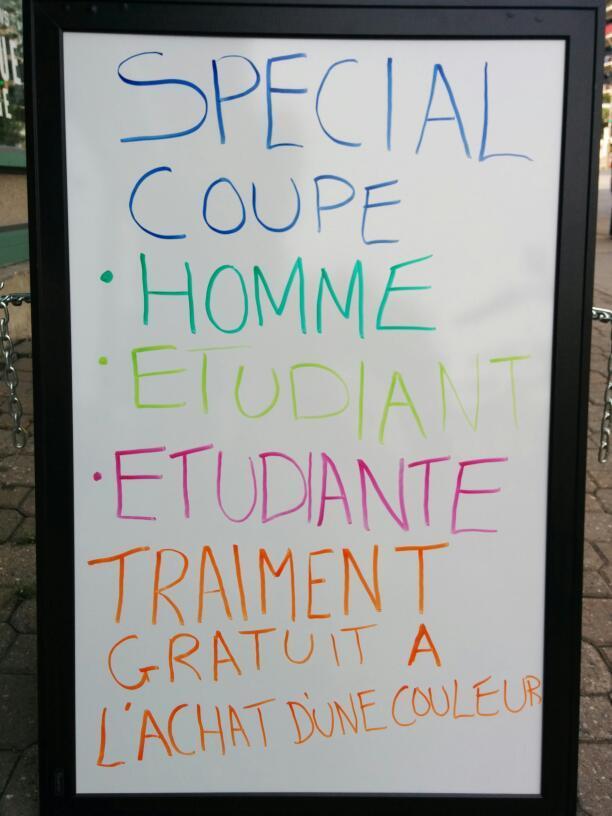 SPECIAL
COUPE
• HOMME
• ETUDIANT
• ETUDIANTE
TRAIMENT
GRATUIT A
L'ACHAT D'UNE COULEUR